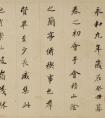 永和九年歲在癸丑暮
春之初會于會稽山陰
之蘭亭脩禊事也羣
賢畢至少長咸集此
地有崇山峻領茂林